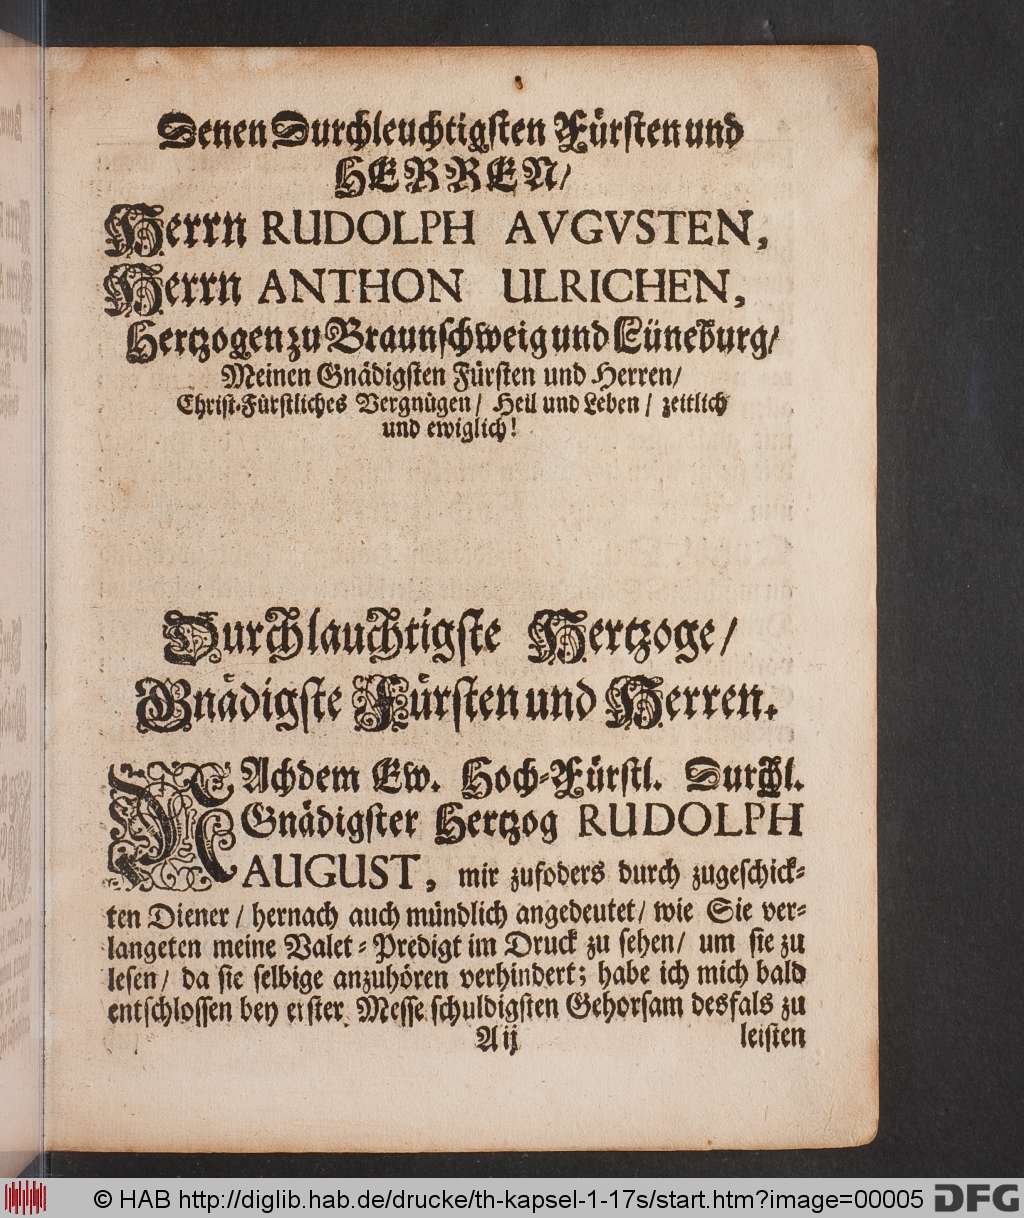 Denen Durchleuchtigsten Fürsten und
HERREN/
Herrn RUDOLPH AVGVSTEN,
Herrn ANTHON ULRICHEN,
Hertzogen zu Braunschweig und Lüneburg/
Meinen Gnädigsten Fürsten und Herren/
Christ-Fürstliches Vergnügen/ Heil und Leben/ zeitlich
und ewiglich!
Durchlauchtigste Hertzoge/
Gnädigste Fürsten und Herren.
NAchdem Ew. Hoch-Fürstl. Durchl.
Gnädigster Hertzog RUDOLPH
AUGUST, mir zufoders durch zugeschick-
ten Diener/ hernach auch mündlich angedeutet/ wie Sie ver-
langeten meine Valet-Predigt im Druck zu sehen/ um sie zu
lesen/ da sie selbige anzuhören verhindert; habe ich mich bald
entschlossen bey erster Messe schuldigsten Gehorsam desfals zu
A ij leisten
© HAB http://diglib.hab.de/drucke/th-kapsel-1-17s/start.htm?image=00005 DFG